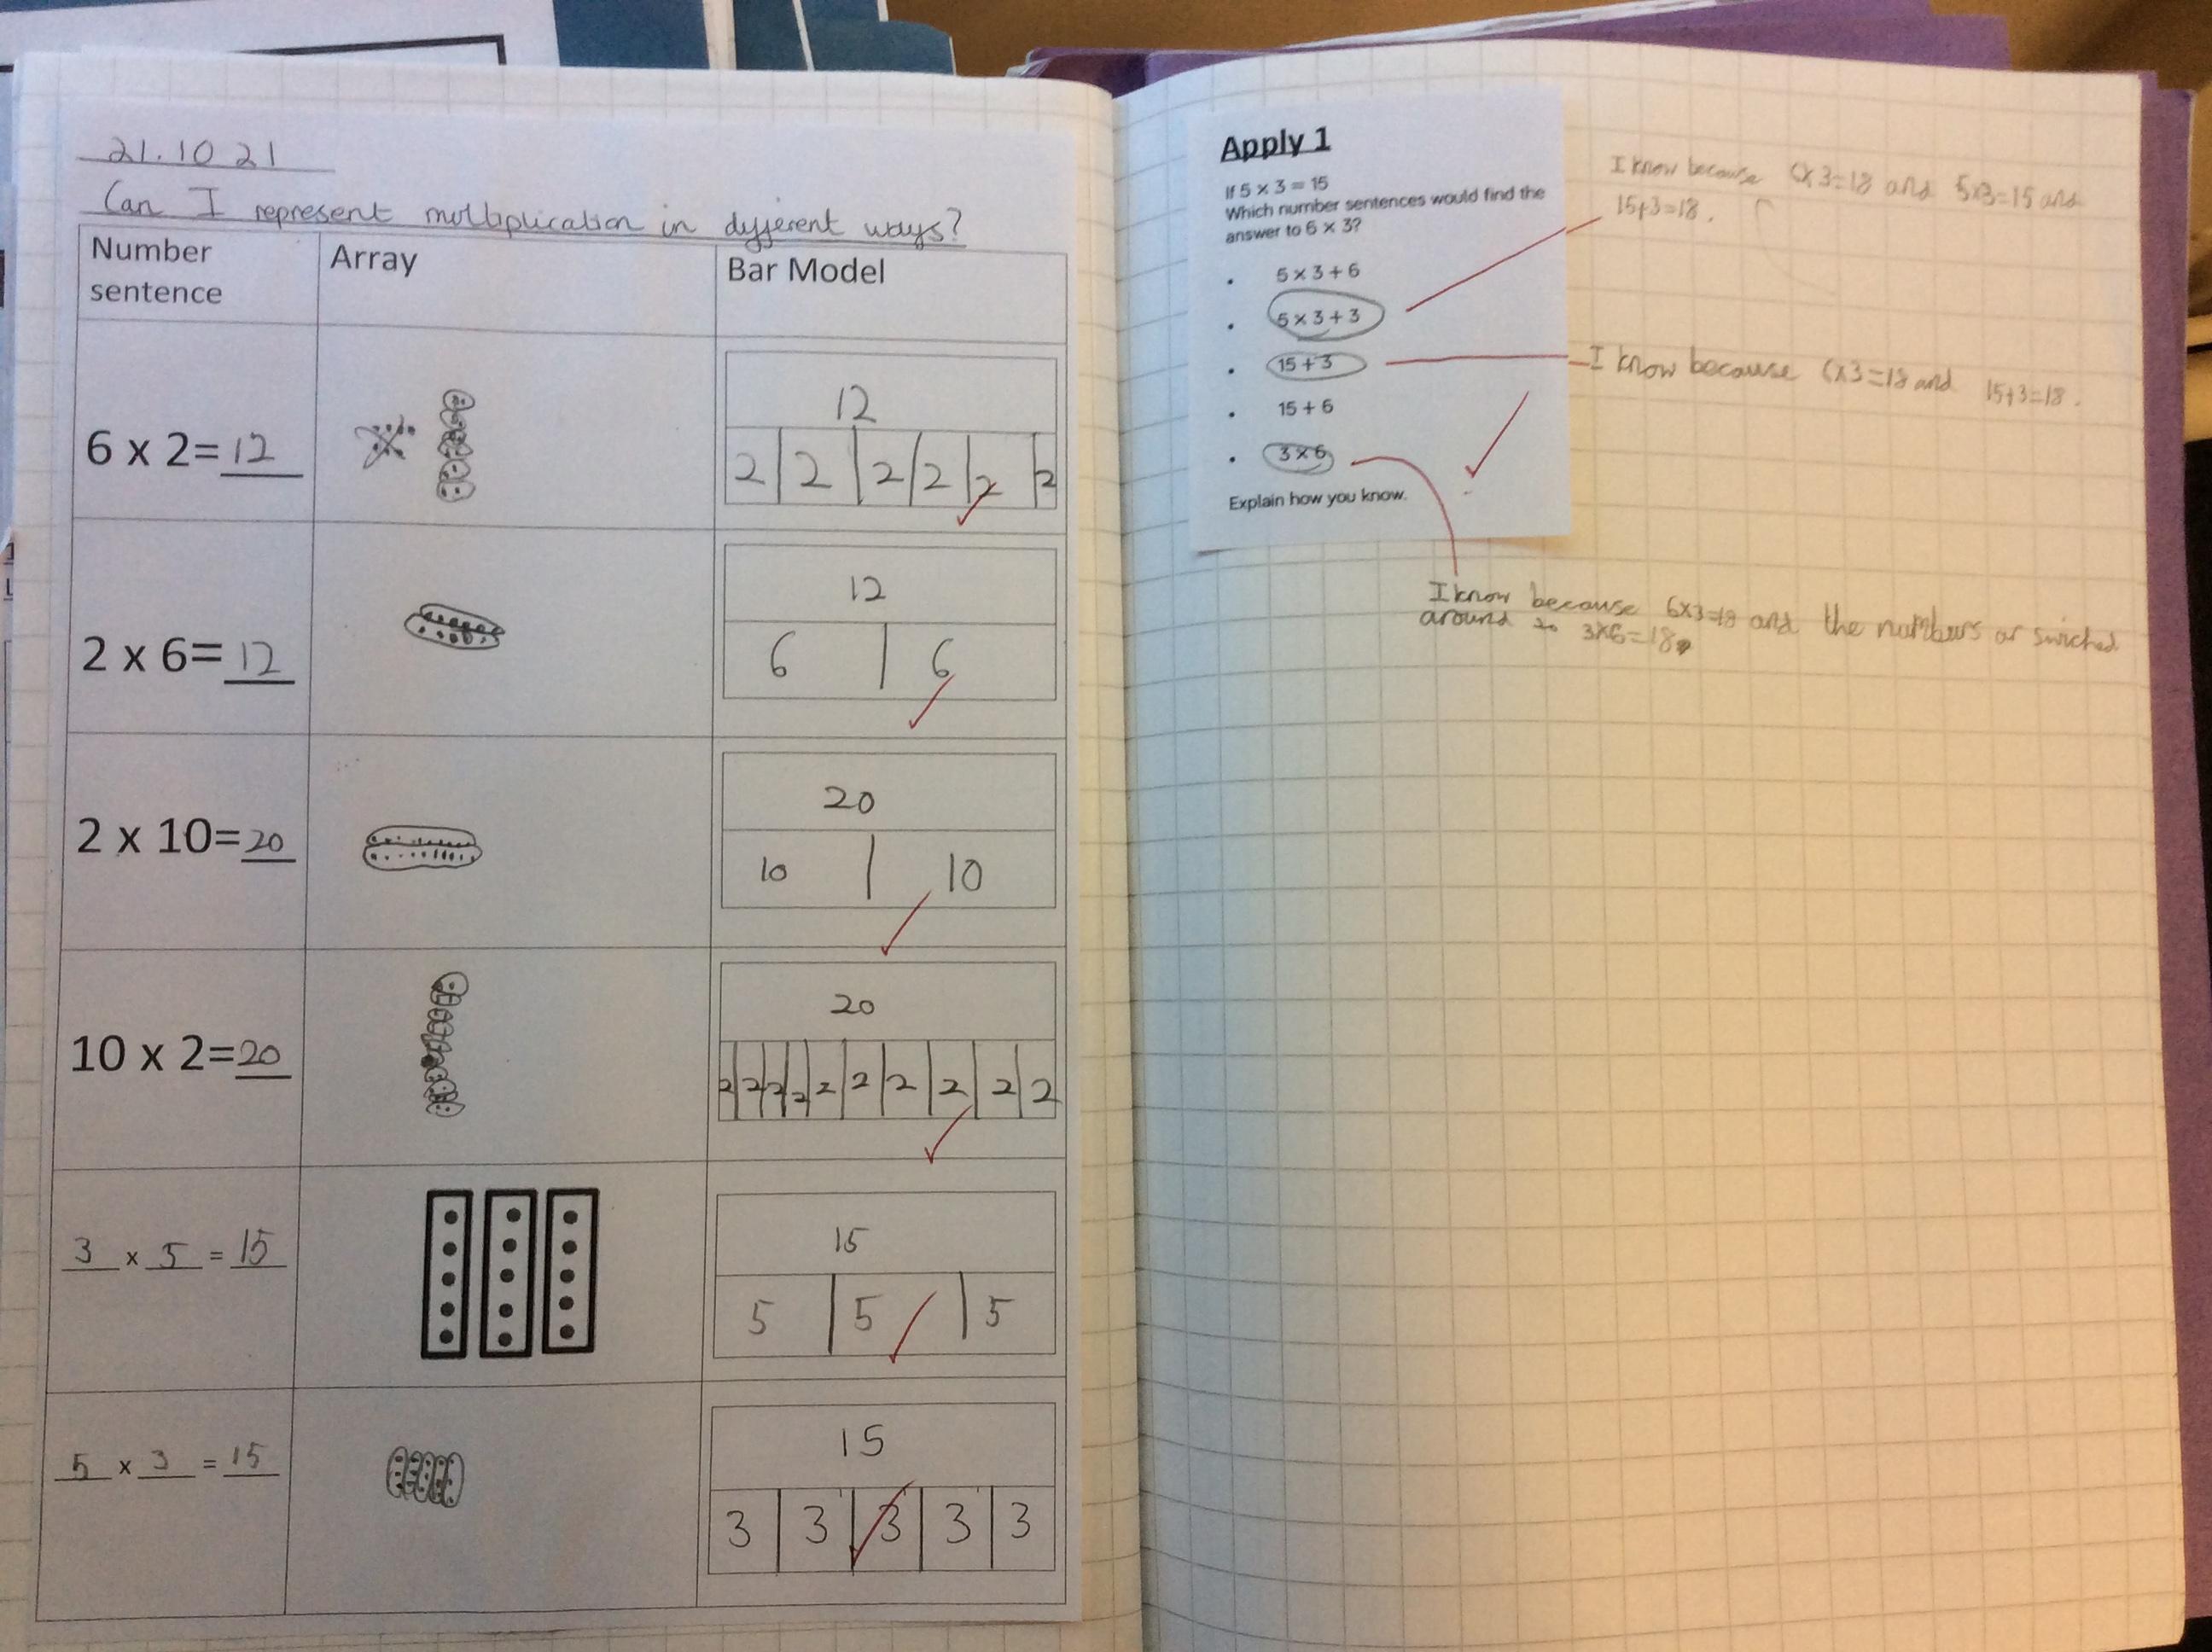 21.10 21
Can I represent multiplication in different ways?
Number
sentence
Array
Bar Model
6 x 2=12
12
2 2 2 2 2 2
2 x 6=12
12
6 6
2 x 10=20
20
10 10
10 x 2=20
20
2 2 2 2 2 2 2 2 2 2
3 x 5 = 15
15
5 5 5
5 x 3 = 15
15
3 3 3 3 3
Apply 1
If 5 × 3 = 15
Which number sentences would find the
answer to 6 × 3?
5 × 3 + 6
5 × 3 + 3
15 + 3
15 + 6
3 × 6
Explain how you know.
I know because 6x3=18 and 5x3=15 and
15+3=18.
I know because 6x3=18 and 15+3=18.
I know because 6x3=18 and the numbers ar swiched
around so 3x6=18.